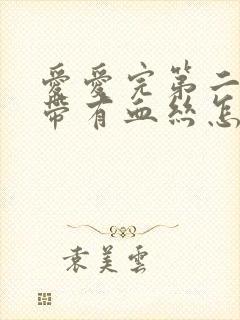 愛愛完第二
帶有血絲怎
袁美雲